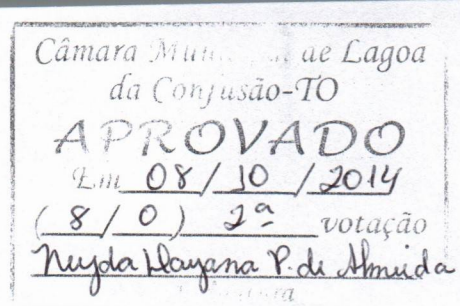 Câmara Municipal de Lagoa
da Confusão-TO
APROVADO
Em 08/10/2014
(8/0) 2ª votação
Neyda Dayana P. de Almeida